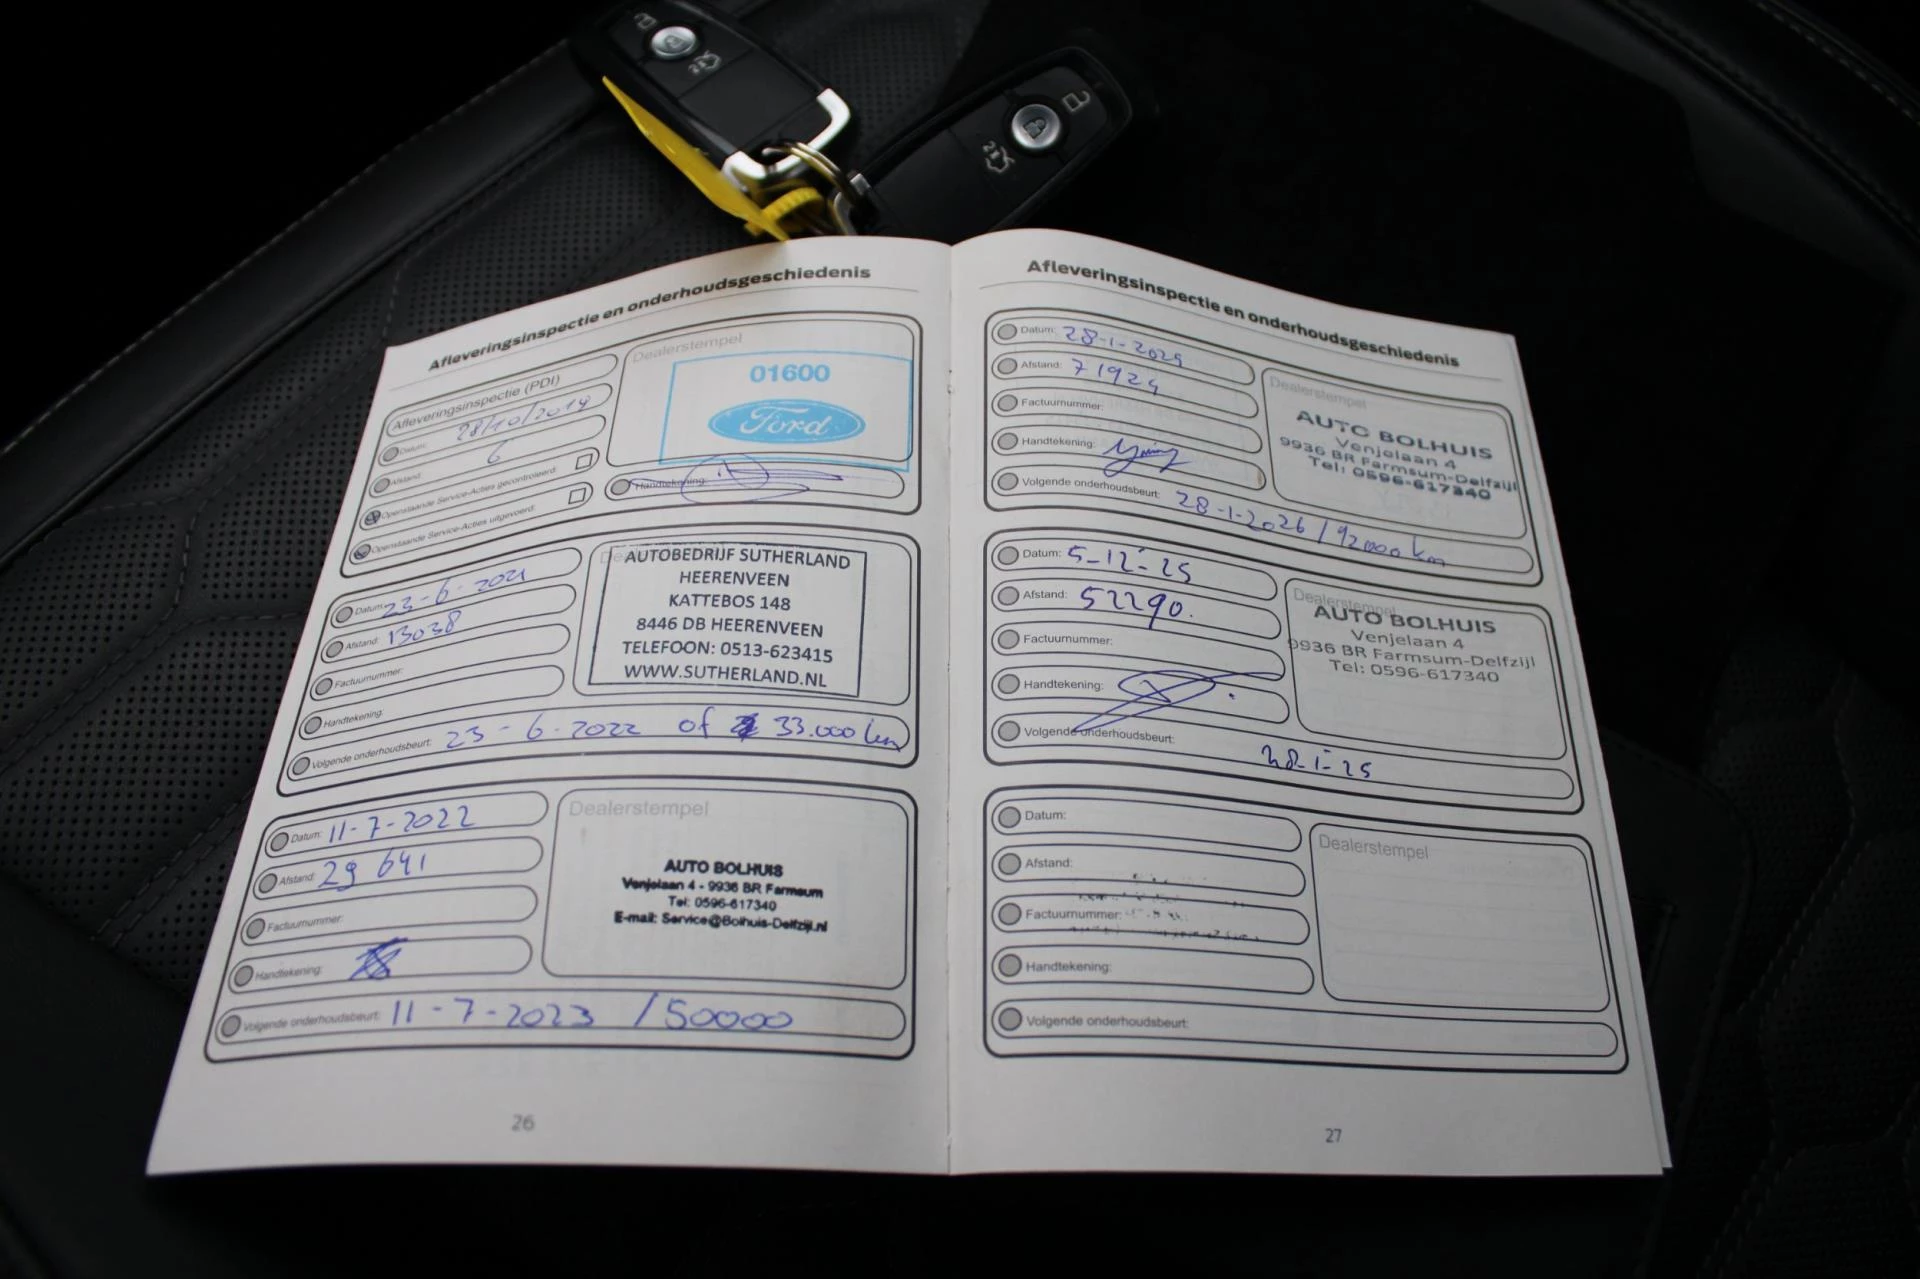 Afleveringsinspectie en onderhoudsgeschiedenis
Afleveringsinspectie (PDI)
Datum: 28/10/2019
Afstand: 6
Openstaande Service-Acties gecontroleerd:
Openstaande Service-Acties uitgevoerd:
Dealerstempel
01600
Ford
Handtekening:
Datum: 23-6-2021
Afstand: 13038
Factuurnummer:
Handtekening:
Volgende onderhoudsbeurt: 23-6-2022 of 33.000 km
AUTOBEDRIJF SUTHERLAND
HEERENVEEN
KATTEBOS 148
8446 DB HEERENVEEN
TELEFOON: 0513-623415
WWW.SUTHERLAND.NL
Datum: 11-7-2022
Afstand: 29 641
Factuurnummer:
Handtekening:
Volgende onderhoudsbeurt: 11-7-2023 / 50000
Dealerstempel
AUTO BOLHUIS
Venjelaan 4 - 9936 BR Farmsum
Tel: 0596-617340
E-mail: Service@Bolhuis-Delfzijl.nl
26
Afleveringsinspectie en onderhoudsgeschiedenis
Datum: 28-1-2025
Afstand: 71924
Factuurnummer:
Handtekening:
Volgende onderhoudsbeurt: 28-1-2026 / 92000 km
Dealerstempel
AUTO BOLHUIS
Venjelaan 4
9936 BR Farmsum-Delfzijl
Tel: 0596-617340
Datum: 5-12-25
Afstand: 52290.
Factuurnummer:
Handtekening:
Volgende onderhoudsbeurt: 28-1-25
Dealerstempel
AUTO BOLHUIS
Venjelaan 4
9936 BR Farmsum-Delfzijl
Tel: 0596-617340
Datum:
Afstand:
Factuurnummer:
Handtekening:
Volgende onderhoudsbeurt:
Dealerstempel
27